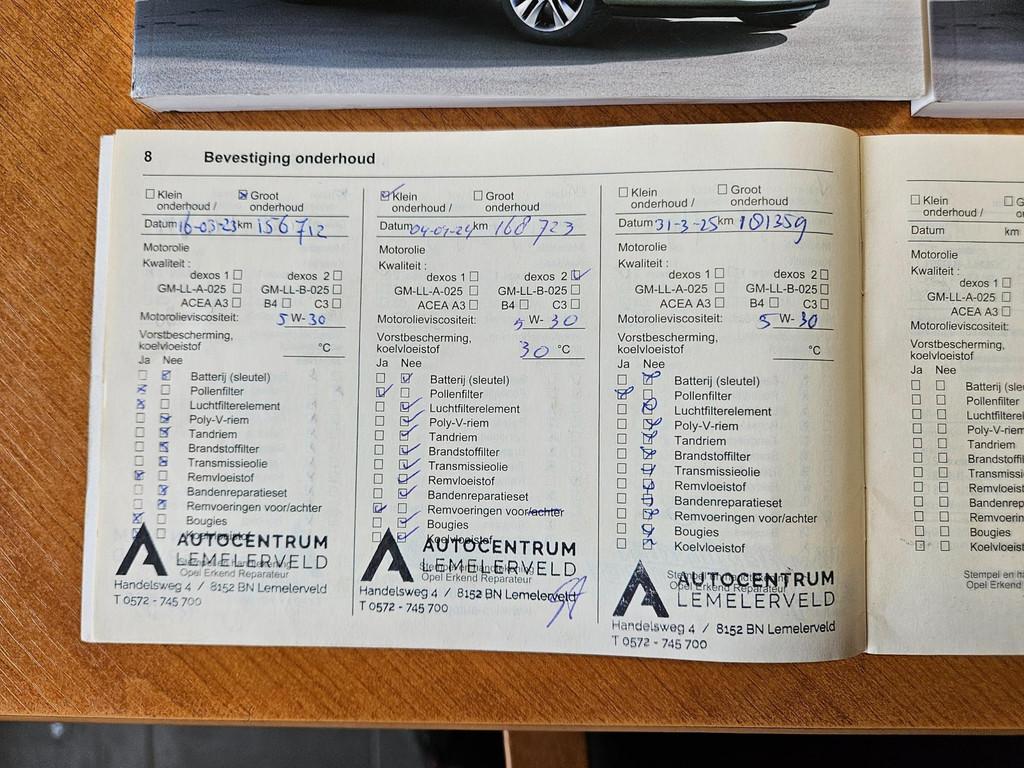 8 Bevestiging onderhoud
Klein onderhoud / Groot onderhoud
Datum 16-03-23 km 156712
Motorolie
Kwaliteit :
dexos 1 dexos 2
GM-LL-A-025 GM-LL-B-025
ACEA A3 B4 C3
Motorolieviscositeit: 5 W- 30
Vorstbescherming,
koelvloeistof °C
Ja Nee
Batterij (sleutel)
Pollenfilter
Luchtfilterelement
Poly-V-riem
Tandriem
Brandstoffilter
Transmissieolie
Remvloeistof
Bandenreparatieset
Remvoeringen voor/achter
Bougies
Koelvloeistof
AUTOCENTRUM
LEMELERVELD
Handelsweg 4 / 8152 BN Lemelerveld
T 0572 - 745 700
Klein onderhoud / Groot onderhoud
Datum km 168723
Motorolie
Kwaliteit :
dexos 1 dexos 2
GM-LL-A-025 GM-LL-B-025
ACEA A3 B4 C3
Motorolieviscositeit: 5 W- 30
Vorstbescherming,
koelvloeistof 30 °C
Ja Nee
Batterij (sleutel)
Pollenfilter
Luchtfilterelement
Poly-V-riem
Tandriem
Brandstoffilter
Transmissieolie
Remvloeistof
Bandenreparatieset
Remvoeringen voor/achter
Bougies
Koelvloeistof
AUTOCENTRUM
LEMELERVELD
Opel Erkend Reparateur
Handelsweg 4 / 8152 BN Lemelerveld
T 0572 - 745 700
Klein onderhoud / Groot onderhoud
Datum 31-3-25 km 181359
Motorolie
Kwaliteit :
dexos 1 dexos 2
GM-LL-A-025 GM-LL-B-025
ACEA A3 B4 C3
Motorolieviscositeit: 5 W- 30
Vorstbescherming,
koelvloeistof °C
Ja Nee
Batterij (sleutel)
Pollenfilter
Luchtfilterelement
Poly-V-riem
Tandriem
Brandstoffilter
Transmissieolie
Remvloeistof
Bandenreparatieset
Remvoeringen voor/achter
Bougies
Koelvloeistof
AUTOCENTRUM
LEMELERVELD
Opel Erkend Reparateur
Handelsweg 4 / 8152 BN Lemelerveld
T 0572 - 745 700
Klein
onderhoud /
Datum km
Motorolie
Kwaliteit :
dexos 1
GM-LL-A-025
ACEA A3
Motorolieviscositeit:
Vorstbescherming,
koelvloeistof
Ja Nee
Batterij (sleu
Pollenfilter
Luchtfiltere
Poly-V-riem
Tandriem
Brandstoffi
Transmissi
Remvloeist
Bandenrep
Remvoerin
Bougies
Koelvloeist
Stempel en
Opel Erkend